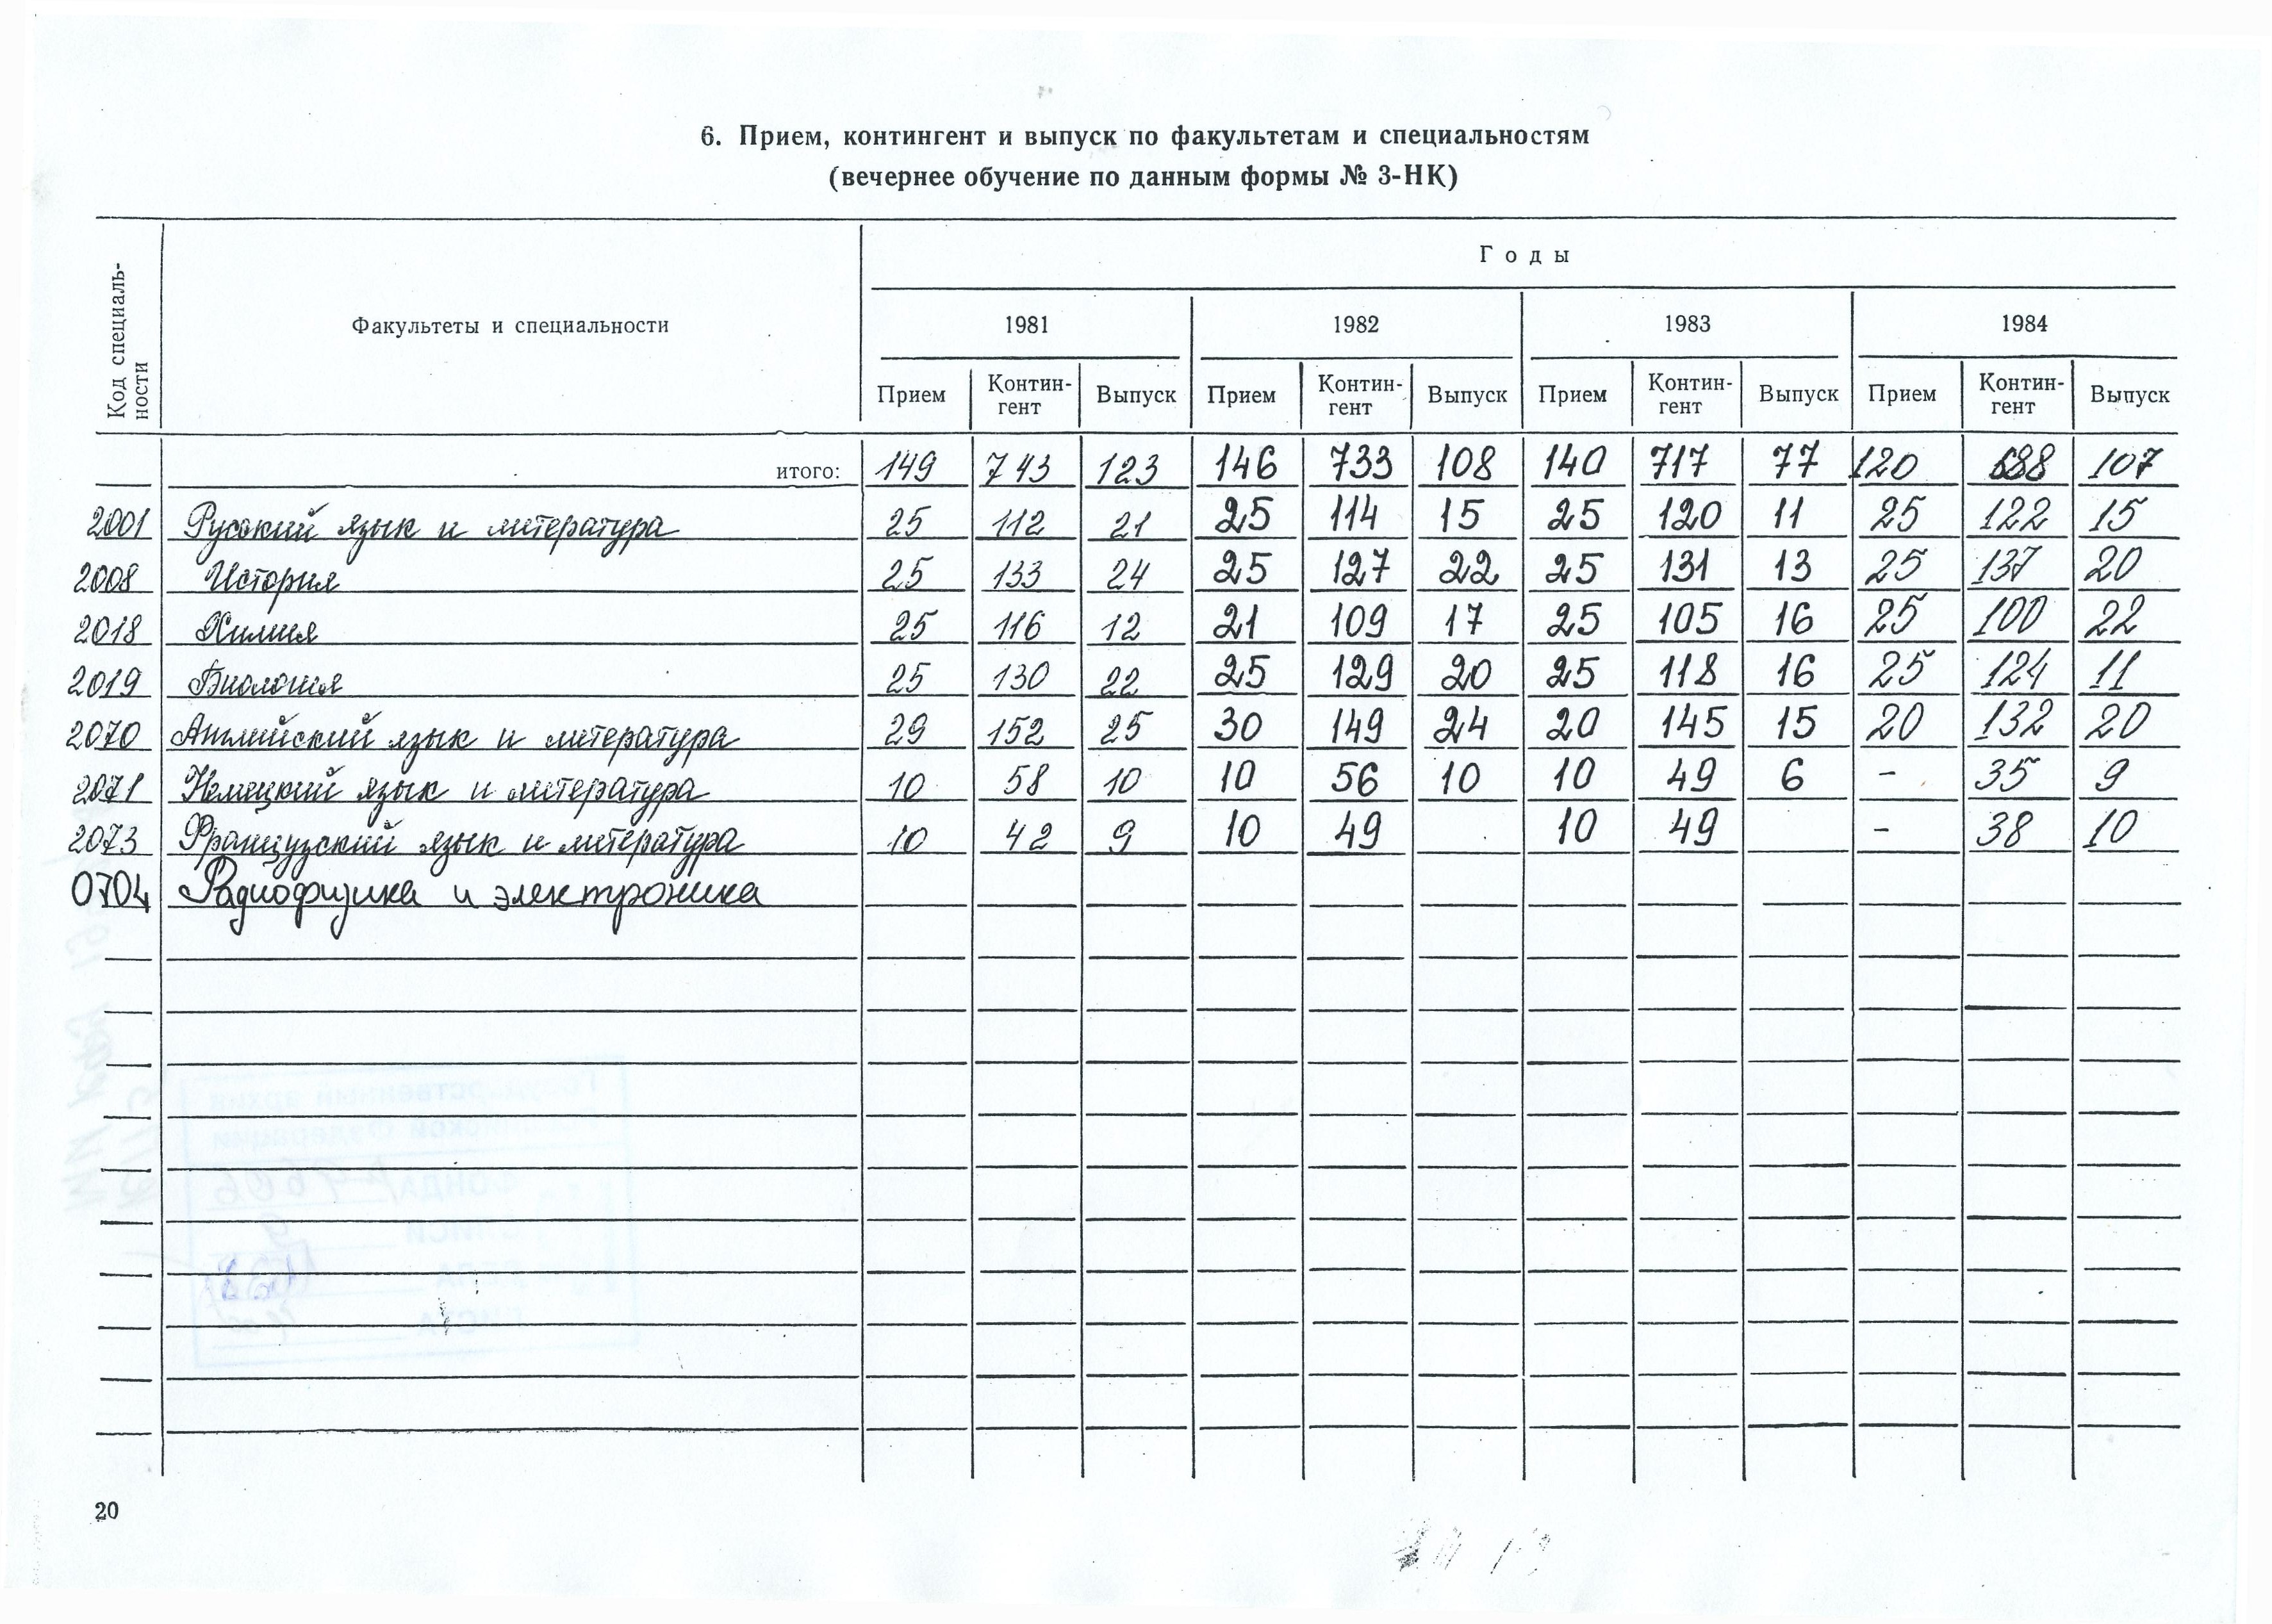 6. Прием, контингент и выпуск по факультетам и специальностям
(вечернее обучение по данным формы № 3-НК)
Код специаль-
ности
Факультеты и специальности
Годы
1981 1982 1983 1984
Прием Контин-
гент Выпуск Прием Контин-
гент Выпуск Прием Контин-
гент Выпуск Прием Контин-
гент Выпуск
итого: 149 743 123 146 733 108 140 717 77 120 688 107
2001 Русский язык и литература 25 112 21 25 114 15 25 120 11 25 122 15
2008 История 25 133 24 25 127 22 25 131 13 25 137 20
2018 Химия 25 116 12 21 109 17 25 105 16 25 100 22
2019 Биология 25 130 22 25 129 20 25 118 16 25 124 11
2070 Английский язык и литература 29 152 25 30 149 24 20 145 15 20 132 20
2071 Немецкий язык и литература 10 58 10 10 56 10 10 49 6 - 35 9
2073 Французский язык и литература 10 42 9 10 49 10 49 - 38 10
0704 Радиофизика и электроника
20